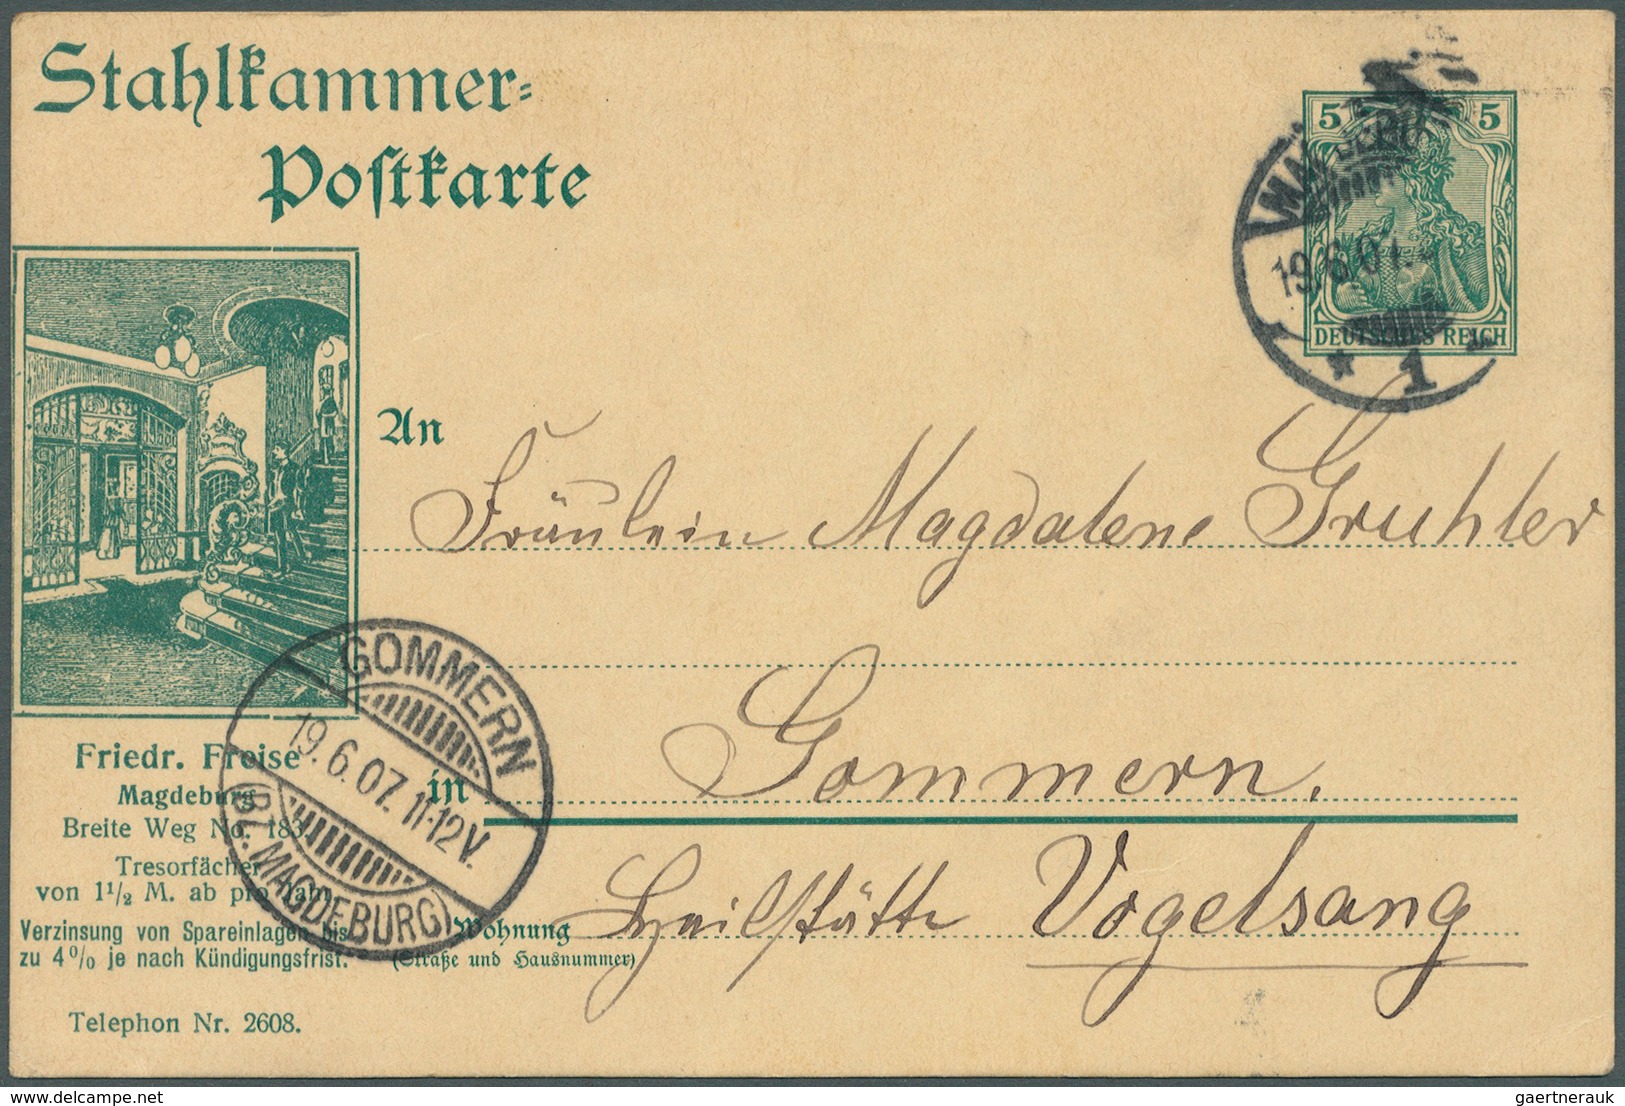 Stahlkammer-
Postkarte
5 5
MAGDEBURG
19.6.07.
* 1
DEUTSCHES REICH
An
Fräulein Magdalene Gruhler
in Gommern.
Wohnung Heilstätte Vogelsang
(Straße und Hausnummer)
GOMMERN
19.6.07. 11-12V.
(BZ. MAGDEBURG)
Friedr. Freise
Magdeburg
Breite Weg No. 183.
Tresorfächer
von 1½ M. ab pro Jahr.
Verzinsung von Spareinlagen bis
zu 4% je nach Kündigungsfrist.
Telephon Nr. 2608.
gaertnerauk